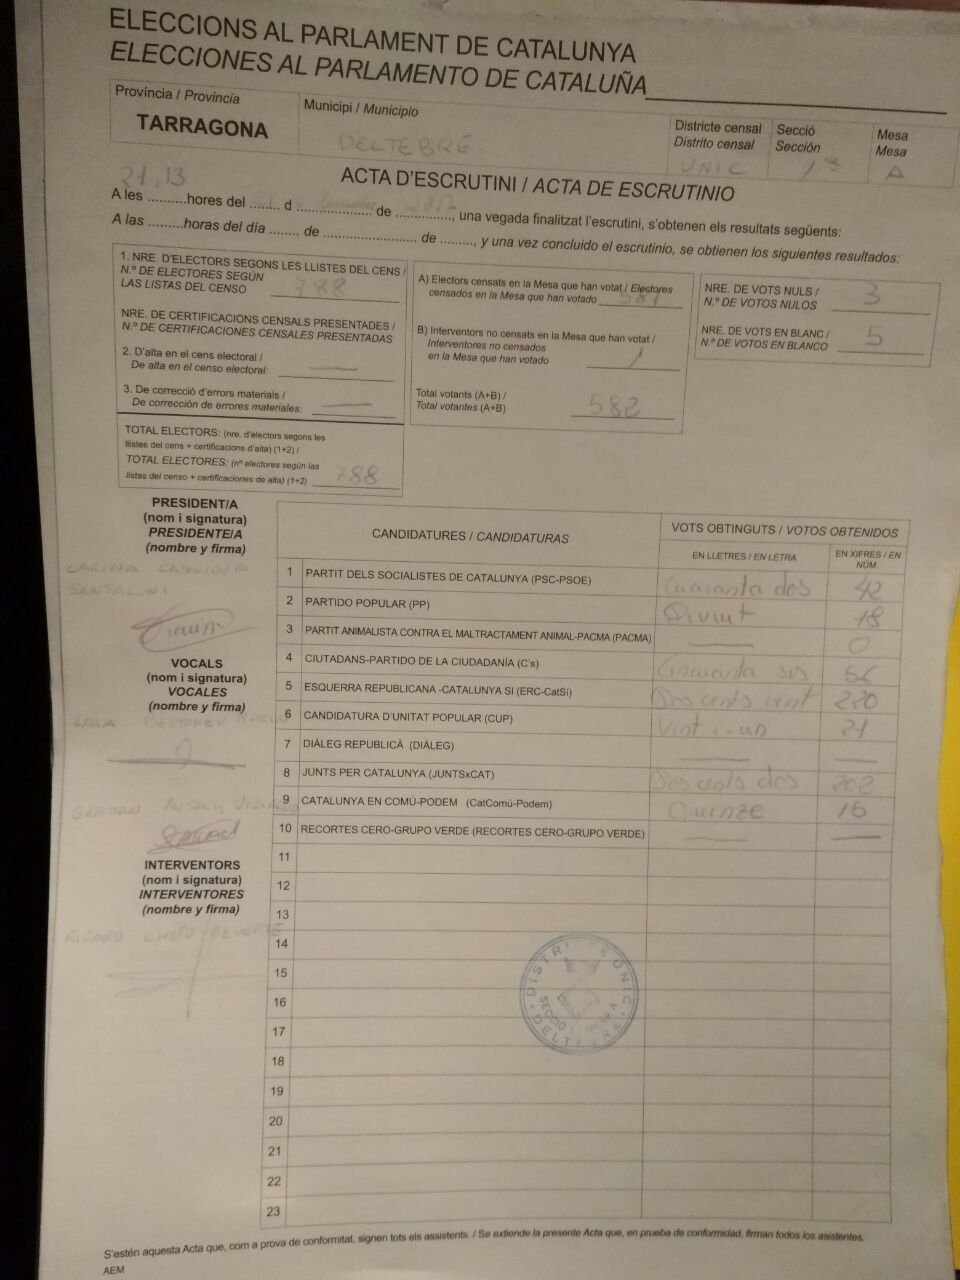 ELECCIONS AL PARLAMENT DE CATALUNYA
ELECCIONES AL PARLAMENTO DE CATALUÑA
Província / Provincia
TARRAGONA
Municipi / Municipio
DELTEBRE
Districte censal
Distrito censal
UNIC
Secció
Sección
1ª
Mesa
Mesa
A
ACTA D'ESCRUTINI / ACTA DE ESCRUTINIO
21,13 2017
A les ..........hores del ........ d .................... de ..............., una vegada finalitzat l'escrutini, s'obtenen els resultats següents:
A las .........horas del día ........ de ......................... de ........., y una vez concluido el escrutinio, se obtienen los siguientes resultados:
1. NRE. D'ELECTORS SEGONS LES LLISTES DEL CENS /
N.º DE ELECTORES SEGÚN
LAS LISTAS DEL CENSO 788
NRE. DE CERTIFICACIONS CENSALS PRESENTADES /
N.º DE CERTIFICACIONES CENSALES PRESENTADAS
2. D'alta en el cens electoral /
De alta en el censo electoral: —
3. De correcció d'errors materials /
De corrección de errores materiales: —
TOTAL ELECTORS: (nre. d'electors segons les
llistes del cens + certificacions d'alta) (1+2) /
TOTAL ELECTORES: (nº electores según las
listas del censo + certificaciones de alta) (1+2) 788
A) Electors censats en la Mesa que han votat / Electores
censados en la Mesa que han votado 581
B) Interventors no censats en la Mesa que han votat /
Interventores no censados
en la Mesa que han votado 1
Total votants (A+B) /
Total votantes (A+B) 582
NRE. DE VOTS NULS /
N.º DE VOTOS NULOS 3
NRE. DE VOTS EN BLANC /
N.º DE VOTOS EN BLANCO 5
PRESIDENT/A
(nom i signatura)
PRESIDENTE/A
(nombre y firma)
CARINA
VOCALS
(nom i signatura)
VOCALES
(nombre y firma)
GERMAN
INTERVENTORS
(nom i signatura)
INTERVENTORES
(nombre y firma)
RICARD REVERTÉ
CANDIDATURES / CANDIDATURAS
VOTS OBTINGUTS / VOTOS OBTENIDOS
EN LLETRES / EN LETRA
EN XIFRES / EN NÚM.
1 PARTIT DELS SOCIALISTES DE CATALUNYA (PSC-PSOE) Cuaranta dos 42
2 PARTIDO POPULAR (PP) 18
3 PARTIT ANIMALISTA CONTRA EL MALTRACTAMENT ANIMAL-PACMA (PACMA) — 0
4 CIUTADANS-PARTIDO DE LA CIUDADANÍA (C's) Cincuanta sis 56
5 ESQUERRA REPUBLICANA -CATALUNYA SI (ERC-CatSí) Dos cents vint 220
6 CANDIDATURA D'UNITAT POPULAR (CUP) Vint i-un 21
7 DIÀLEG REPUBLICÀ (DIÀLEG) — —
8 JUNTS PER CATALUNYA (JUNTSxCAT) Dos cents dos 202
9 CATALUNYA EN COMÚ-PODEM (CatComú-Podem) Quinze 15
10 RECORTES CERO-GRUPO VERDE (RECORTES CERO-GRUPO VERDE) — —
11
12
13
14
15
16
17
18
19
20
21
22
23
DISTRICTE ÚNIC
SECCIO
DELTEBRE
S'estén aquesta Acta que, com a prova de conformitat, signen tots els assistents. / Se extiende la presente Acta que, en prueba de conformidad, firman todos los asistentes.
AEM